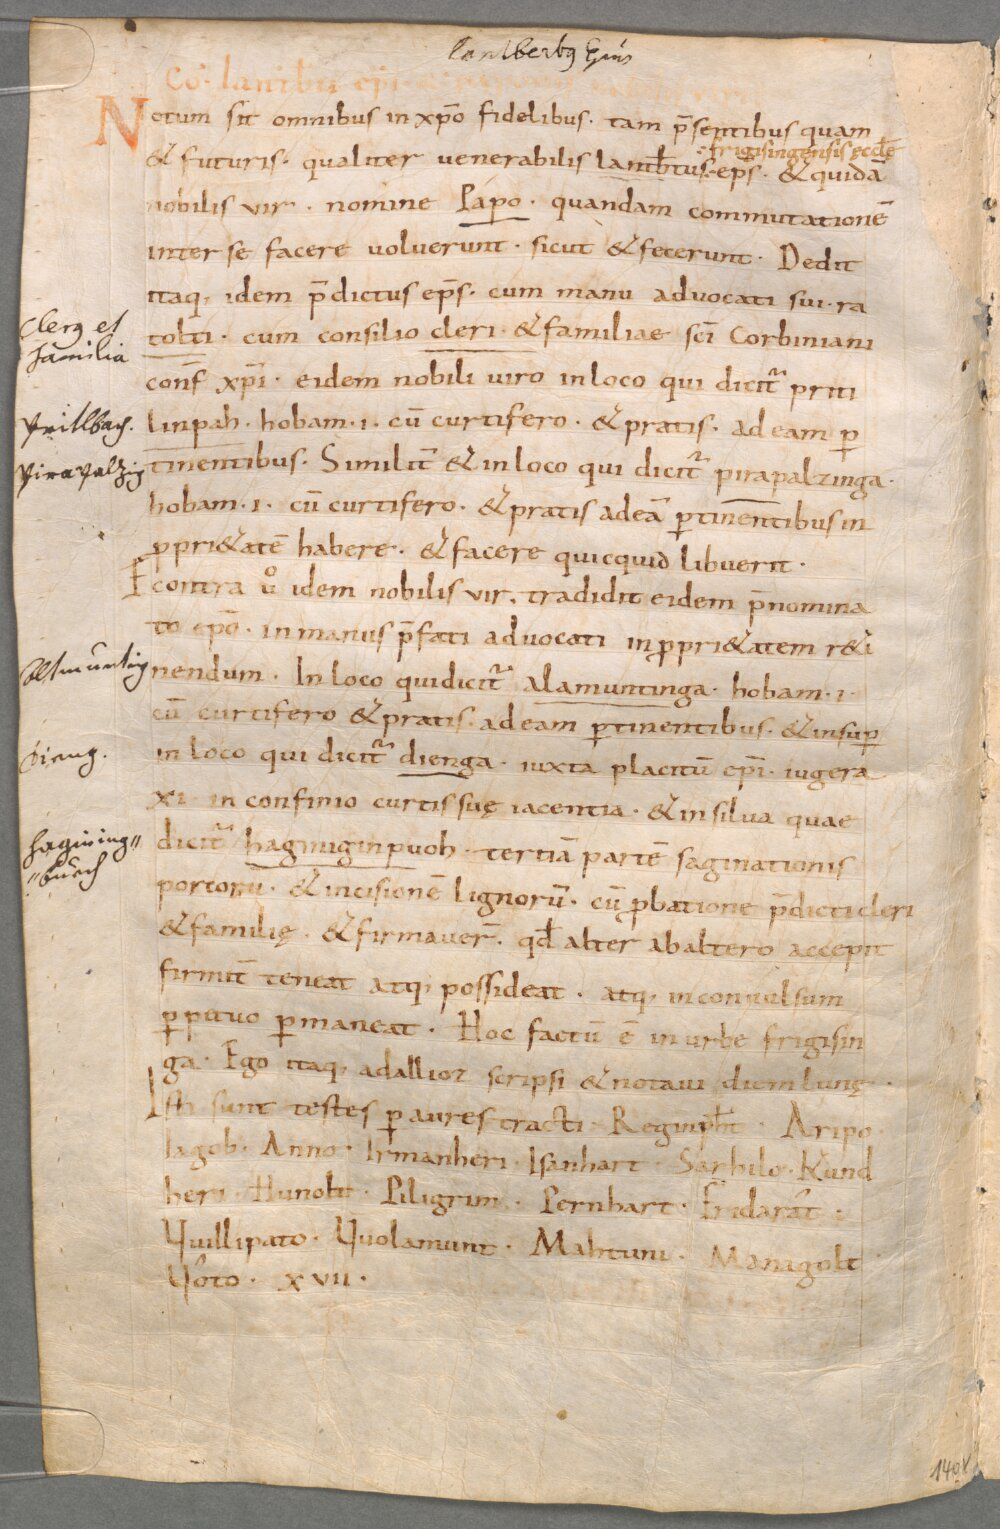 Lantbertus Epus
Co. lantbti epi. &
Notum sit omnibus in xp̄o fidelibus. tam p̄sentibus quam
frigisingensis ęccłę
& futuris. qualiter venerabilis lamb̄tus. ep̄s. & quidā
nobilis vir. nomine Papo. quandam commutationē
inter se facere voluerunt. sicut & fecerunt. Dedit
itaq; idem p̄dictus ep̄s. cum manu advocati sui. ra
tolti. cum consilio cleri. & familiae sc̄i Corbiniani
conf̄ xp̄i. eidem nobili viro in loco qui dicit̄ priti
linpah. hobam. i. cū curtifero. & pratis. ad eam p̱
tinentibus. Similit̄ & in loco qui dicit̄ pirapalzinga.
hobam. i. cū curtifero. & pratis ad eā p̱tinentibus in
ꝓpri&atē habere. & facere quicquid libuerit.
Econtra ů idem nobilis vir. tradidit eidem p̄nomina
to ep̄o. in manus p̄fati advocati in ꝓpri&atem r&i
nendum. In loco qui dicit̄ alamuntinga. hobam. i.
cū curtifero & pratis. ad eam p̱tinentibus. & insup̱
in loco qui dicit̄ dienga. iuxta placitū ep̄i. iugera
xi. in confinio curtis suę iacentia. & in silua quae
dicit̄ haginiginpuoh. tertiā partē saginationis
porcorū. & incisionē lignorū. cū ꝓbatione p̄dicti cleri
& familię. & firmauer̄. qđ alter ab altero accepit
firmit̄ teneat atq; possideat. atq; inconvulsum
p̱petuo p̱maneat. Hoc factū ē in urbe frigisin
ga. Ego itaq; adallioz scripsi & notaui diem lunę.
Isti sunt testes p̱ aures tracti. Reginp̄ht. Aripo.
Iagob. Anno. Irmanheri. Isanhart. Sarhilo. Kund
heri. Hunolt. Piligrim. Pernhart. Fridarāt.
Vuillipato. Vuolamunt. Mahtuni. Managolt
Vôto. xvii.
Clerg et
familia
Pritlbach.
Pirapalzig
Altmünting
Dieng.
hagining"
"büech
140v